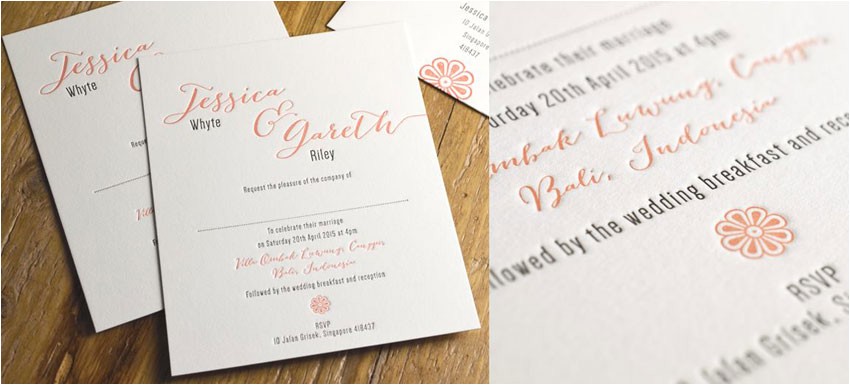 Jessica
Whyte
Jessica
Whyte
& Gareth
Riley
Request the pleasure of the company of:
To celebrate their marriage
on Saturday 20th April 2015 at 4pm
Villa Ombak Luwung, Canggu,
Bali, Indonesia
Followed by the wedding breakfast and reception
RSVP
10 Jalan Grisek, Singapore 418437
Jessica
10 Jalan
Singapore
418437
celebrate their marriage
turday 20th April 2015 at 4pm
Ombak Luwung, Canggu,
Bali, Indonesia
llowed by the wedding breakfast and rece
RSVP
Jalan Grisek, Singap